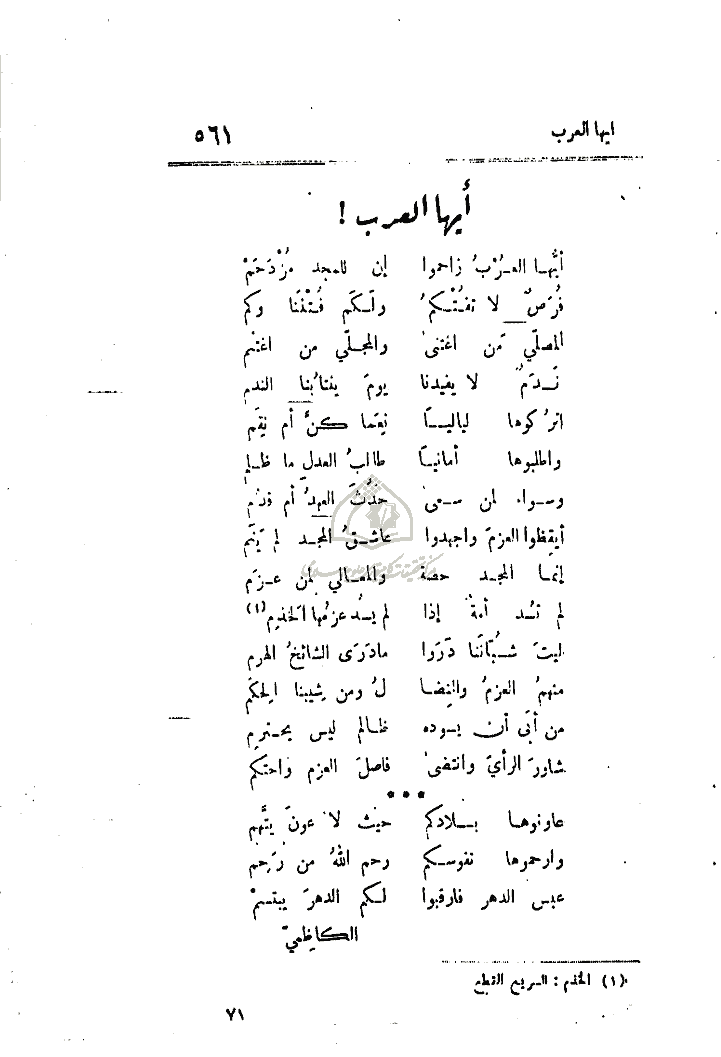 ايها العرب ٥٦١
أيها العرب !
أيُّها العُرْبُ زاحموا إن للمجد مُزْدَحَمْ
فُرَصٌ لا تفُتْكمُ ولَكَم فُتْنَنَا وكم
المصلّي مَن اغتنىٰ والمجلّي من اغتنم
نَدَمٌ لا يفيدنا يومَ ينتابُنا الندم
اتركوها لياليًا نِعَما كنَّ أم نِقَم
واطلبوها أمانيًا طالبُ العدلِ ما ظلم
وسواء لمن سعىٰ حَدُثَ العهدُ أم قدُم
أيقظوا العزمَ واجهدوا عاشقُ المجد لم يَنَم
إنما المجد حصة والمعالي لمن عزَم
لم تسُد أمةٌ إذا لم يسُد عزمُها الخَذِم(١)
ليتَ شُبّانَنا دَرَوا ما دَرَى الشائخُ الهرم
منهمُ العزمُ والنضا لُ ومن شِيبنا الحِكَم
من أبَى أن يسوده ظالم ليس يحترم
شاورَ الرأيَ وانتضىٰ فاصلَ العزم واحتكم
***
عاونوها بلادكم حيث لا عونَ يتَّهم
وارحموها نفوسكم رحم اللهُ من رَحِم
عبس الدهر فارقبوا لكم الدهرَ يبتسمْ
الكاظميّ
(١) الخذم : السريع القطع
٧١